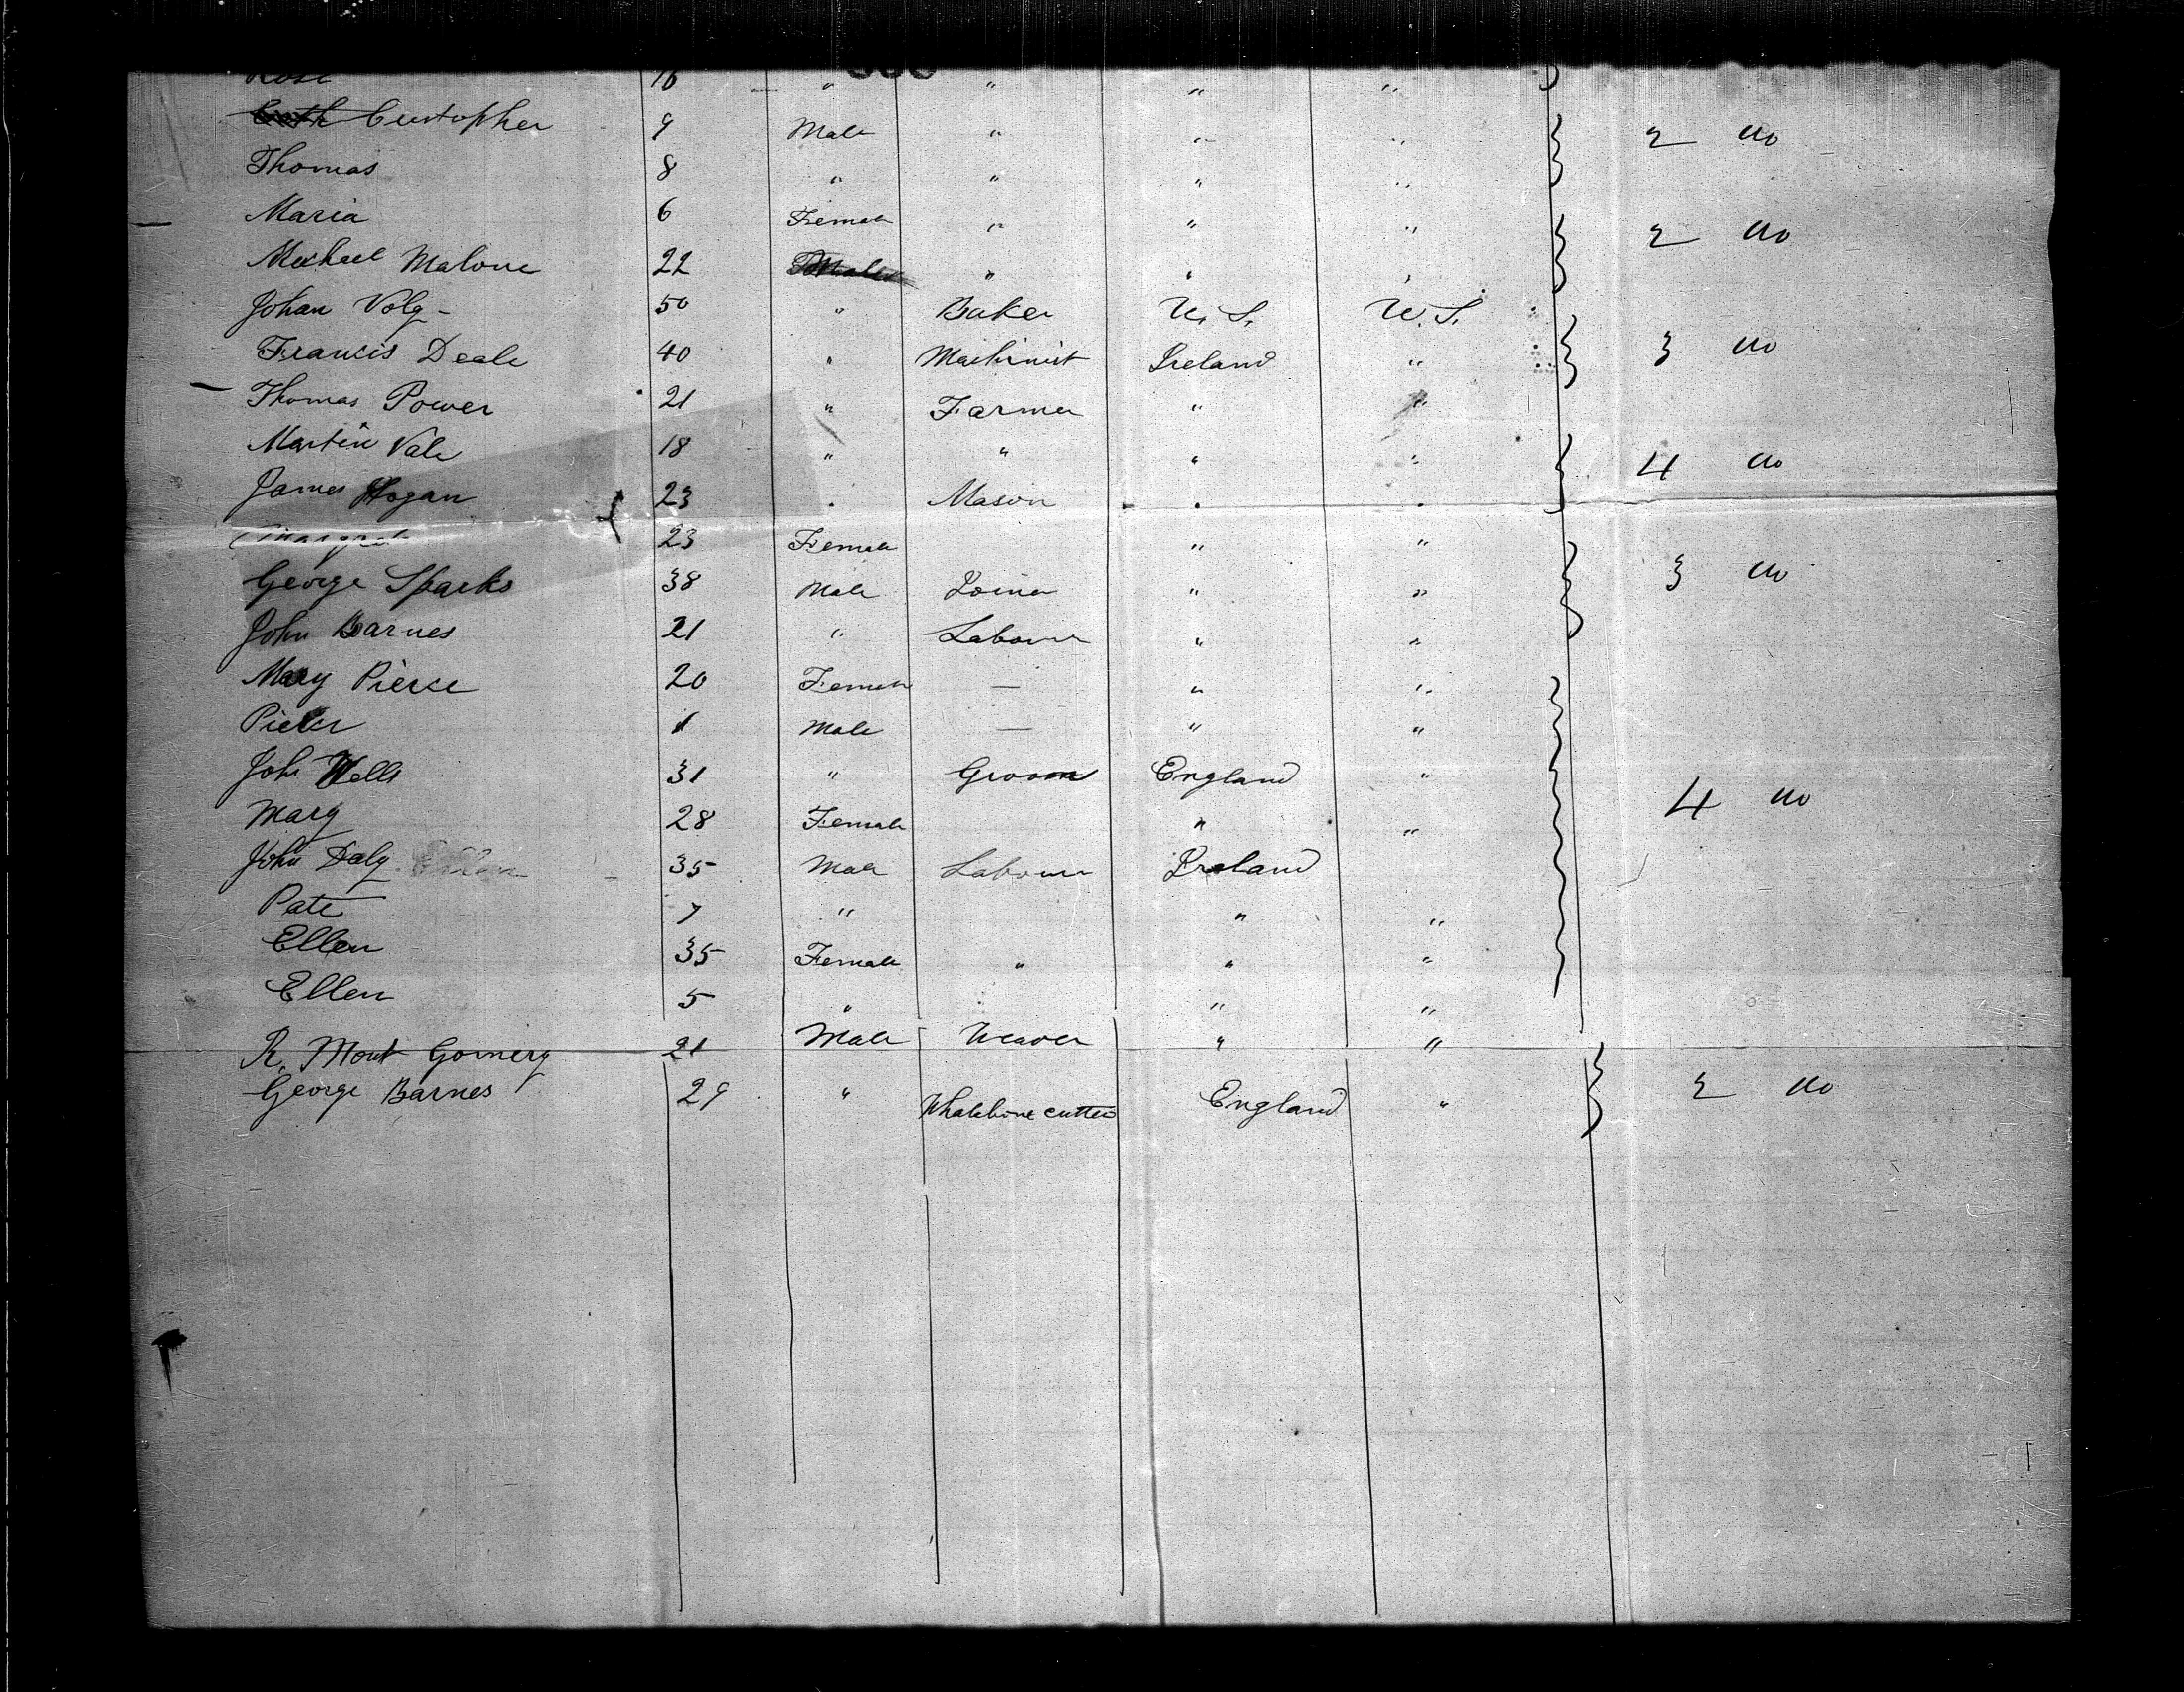 Rose 16 " " " "
Custopher 9 Male " " " 2 do
Thomas 8 " " " "
Maria 6 Female " " "
Michael Malone 22 Male " " " 2 do
Johan Volg - 50 " Baker U. S. U. S.
Francis Deale 40 " Machinist Ireland " 3 do
Thomas Power 21 " Farmer " "
Martin Vale 18 " " " " 4 do
James Hogan 23 " Mason " "
Margret 23 Female " "
George Sparks 38 Male Joiner " " 3 do
John Barnes 21 " Labourer " "
Mary Pierce 20 Female — " "
Pieter 1 Male — " "
John Wells 31 " Groom England "
Mary 28 Female " " 4 do
John Daly 35 Male Labourer Ireland
Pate 7 " " "
Ellen 35 Female " " "
Ellen 5 " " "
R. Mont Gomery 21 Male Weaver " "
George Barnes 29 " Whalebone cutter England " 2 do